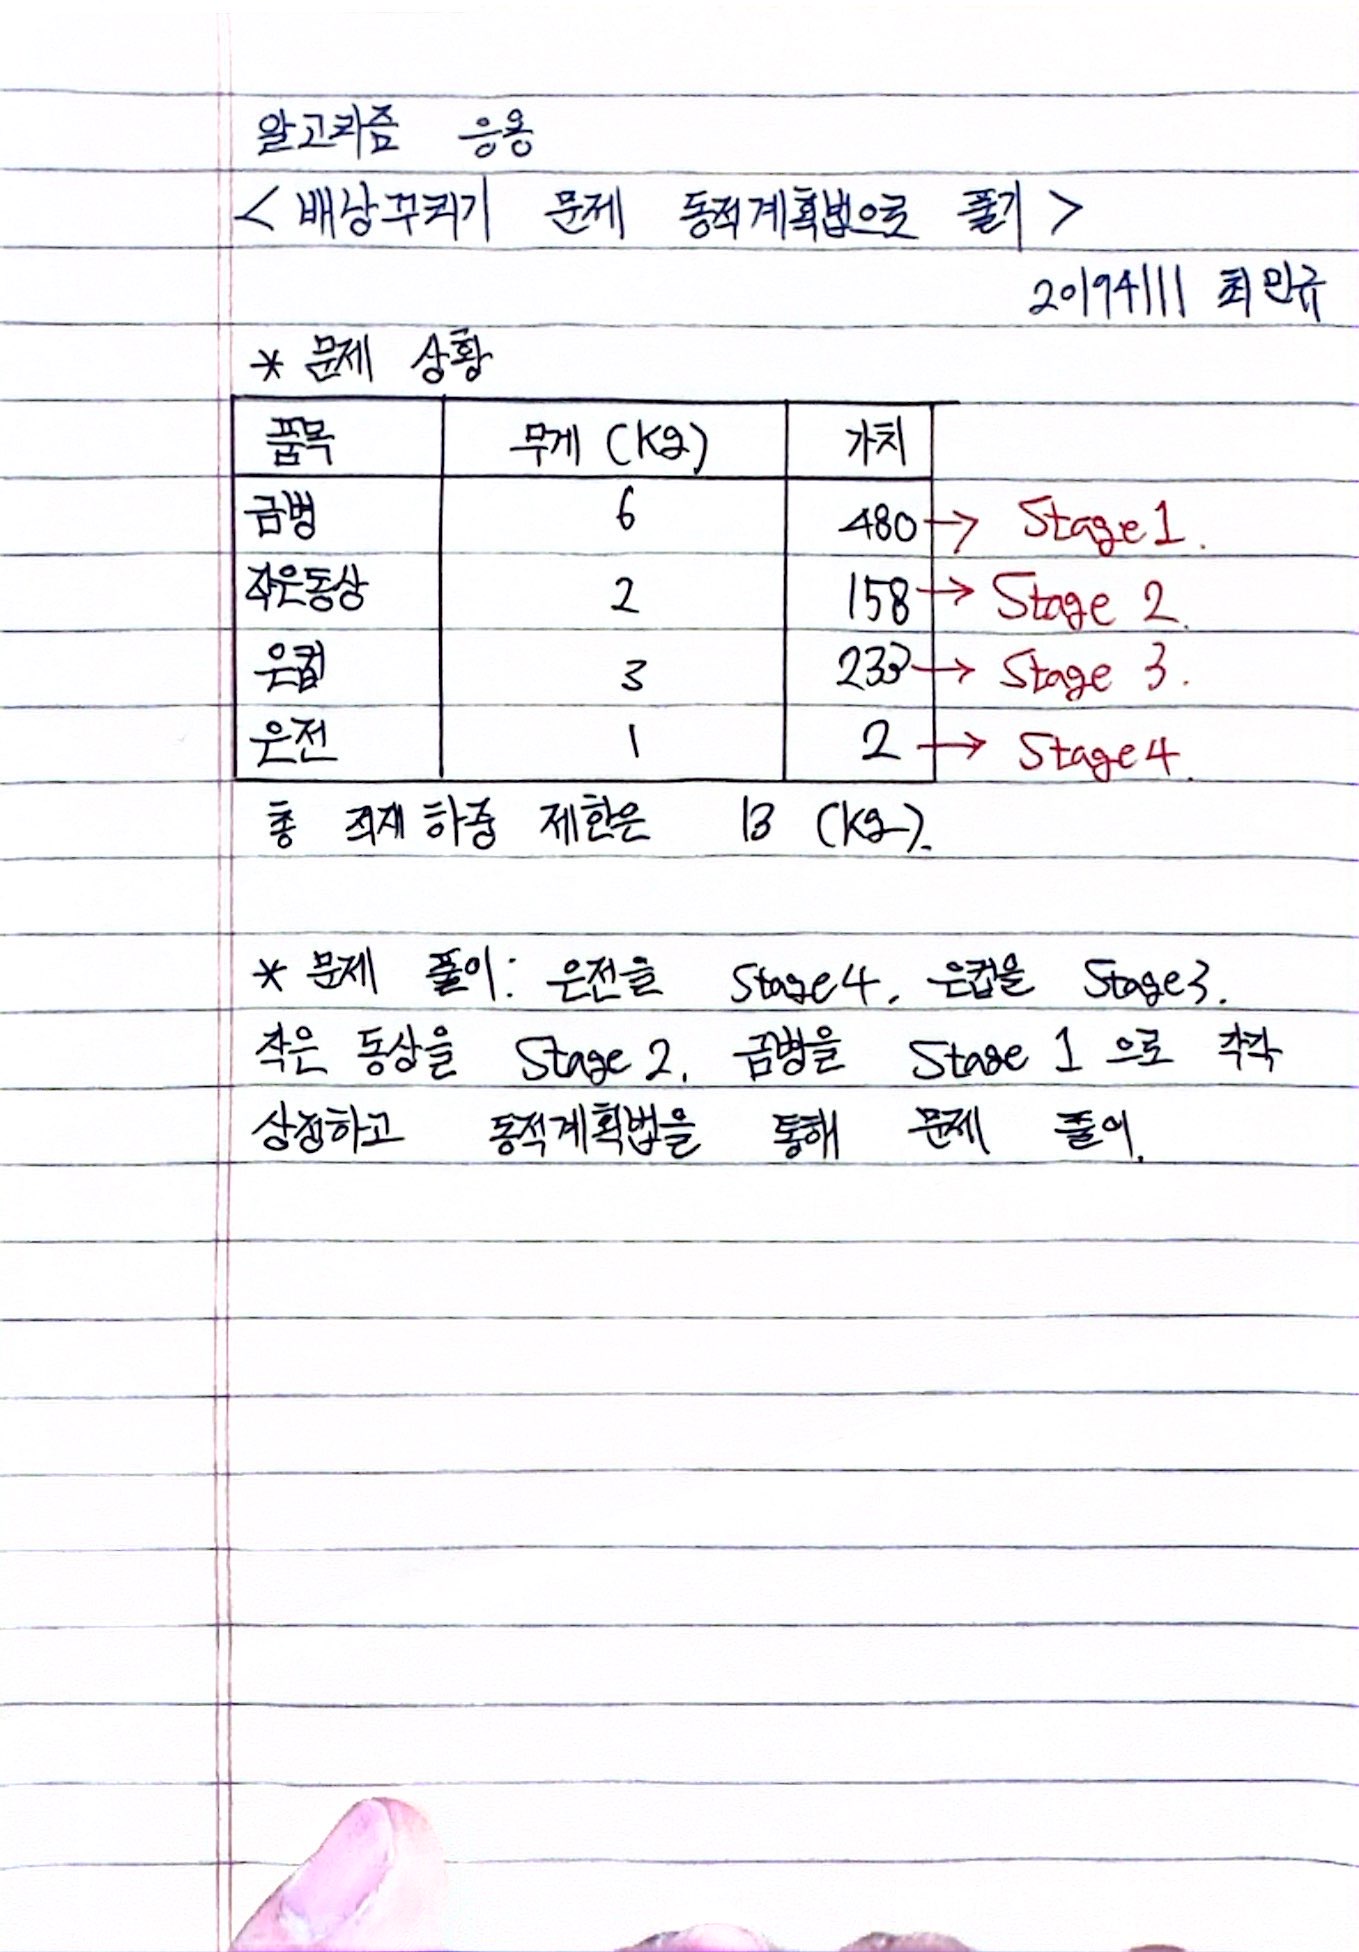 알고리즘 응용
< 배낭꾸리기 문제 동적계획법으로 풀기 >
20194111 최민규
* 문제 상황
품목 무게 (kg) 가치
금병 6 480 → Stage 1.
작은동상 2 158 → Stage 2.
은컵 3 233 → Stage 3.
은전 1 2 → Stage 4.
총 적재 하중 제한은 13 (kg).
* 문제 풀이: 은전을 Stage4, 은컵을 Stage3,
작은 동상을 Stage 2, 금병을 Stage 1 으로 각각
상정하고 동적계획법을 통해 문제 풀이.